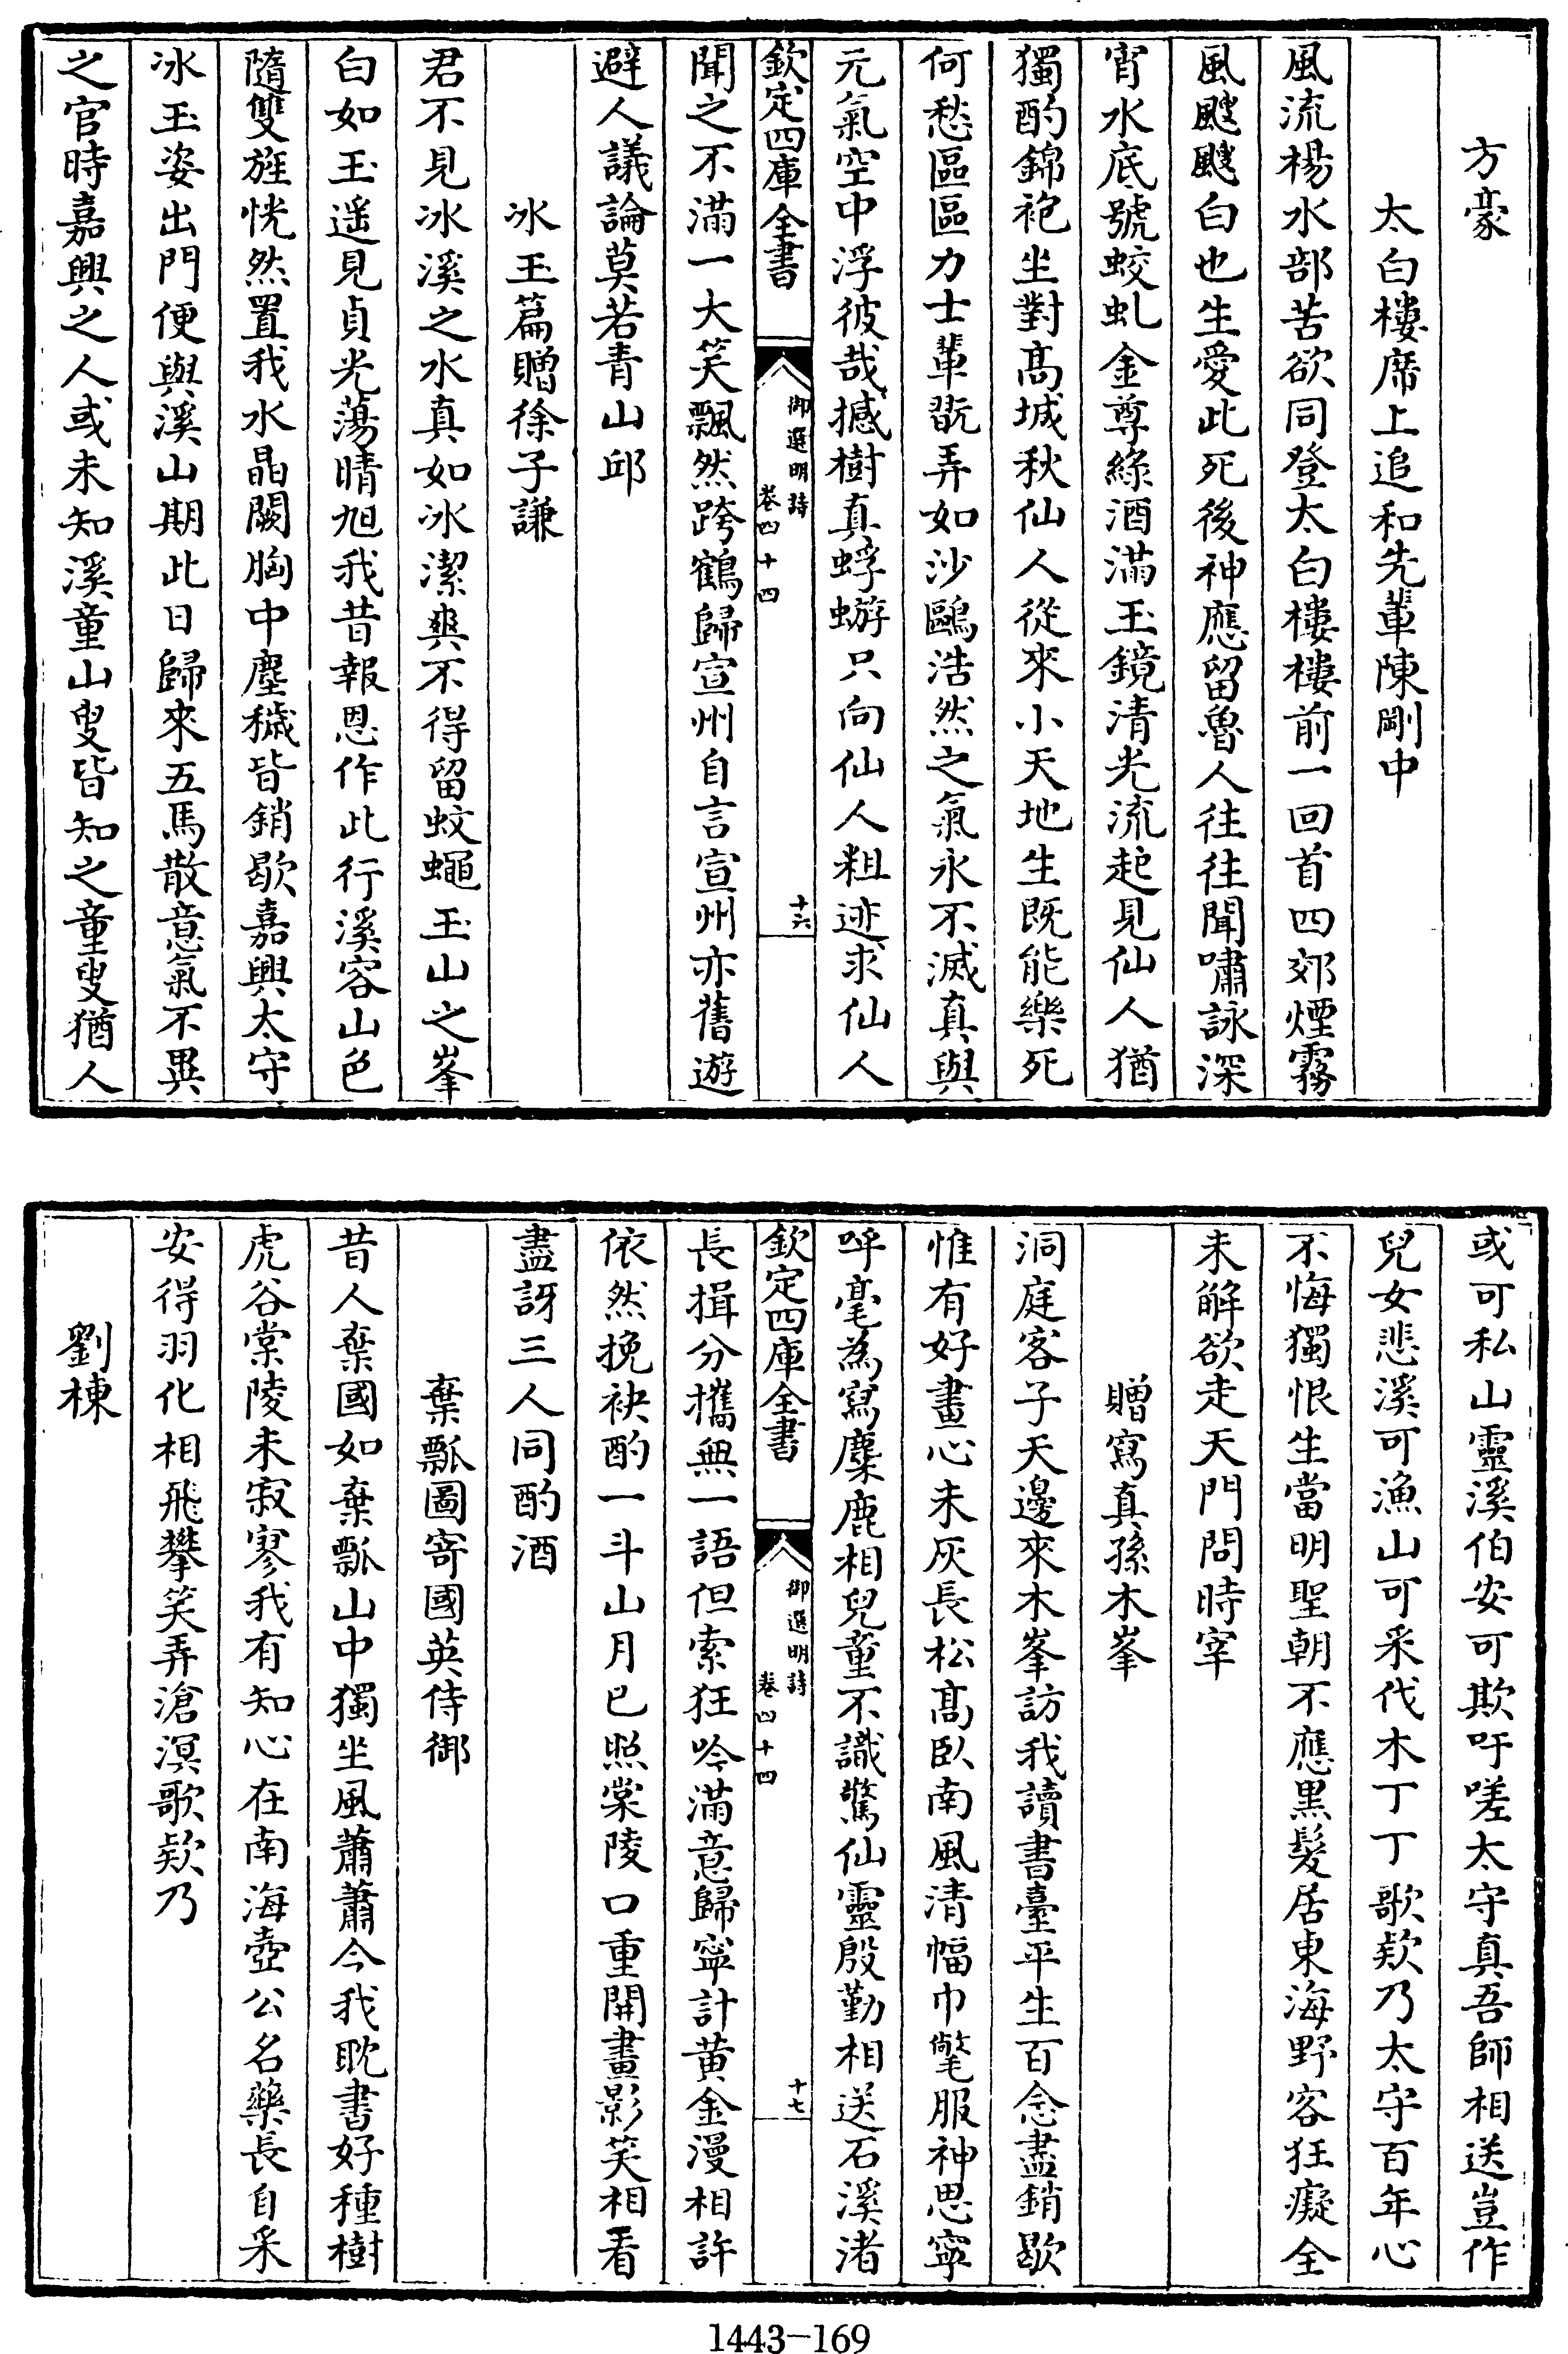 方豪
太白樓席上追和先輩陳剛中
風流楊水部苦欲同登太白樓樓前一回首四郊煙霧
風颼颼白也生愛此死後神應留魯人往往聞嘯詠深
宵水底號蛟虬金尊綠酒滿玉鏡清光流起見仙人猶
獨酌錦袍坐對髙城秋仙人從來小天地生既能樂死
何愁區區力士輩翫弄如沙鷗浩然之氣永不滅真與
元氣空中浮彼哉撼樹真蜉蝣只向仙人粗迹求仙人
欽定四庫全書
御選明詩
卷四十四
十六
聞之不滿一大笑飄然跨鶴歸宣州自言宣州亦舊遊
避人議論莫若青山邱
冰玉篇贈徐子謙
君不見冰溪之水真如冰潔爽不得留蚊蠅玉山之峯
白如玉遥見貞光蕩晴旭我昔報恩作此行溪容山色
隨雙旌恍然置我水晶闕胸中塵穢皆銷歇嘉興太守
冰玉姿出門便與溪山期此日歸來五馬散意氣不異
之官時嘉興之人或未知溪童山叟皆知之童叟猶人
或可私山靈溪伯安可欺吁嗟太守真吾師相送豈作
兒女悲溪可漁山可采伐木丁丁歌欵乃太守百年心
不悔獨恨生當明聖朝不應黒髮居東海野客狂癡全
未解欲走天門問時宰
贈寫真孫木峯
洞庭客子天邊來木峯訪我讀書臺平生百念盡銷歇
惟有好畫心未灰長松髙臥南風清幅巾氅服神思寧
呼毫為寫麋鹿相兒童不識驚仙靈殷勤相送石溪渚
欽定四庫全書
御選明詩
卷四十四
十七
長揖分攜無一語但索狂吟滿意歸寧計黄金漫相許
依然挽袂酌一斗山月已照棠陵口重開畫影笑相看
盡訝三人同酌酒
棄瓢圖寄國英侍御
昔人棄國如棄瓢山中獨坐風蕭蕭今我耽書好種樹
虎谷棠陵未寂寥我有知心在南海壺公名藥長自采
安得羽化相飛攀笑弄滄溟歌欵乃
劉棟
1443-169